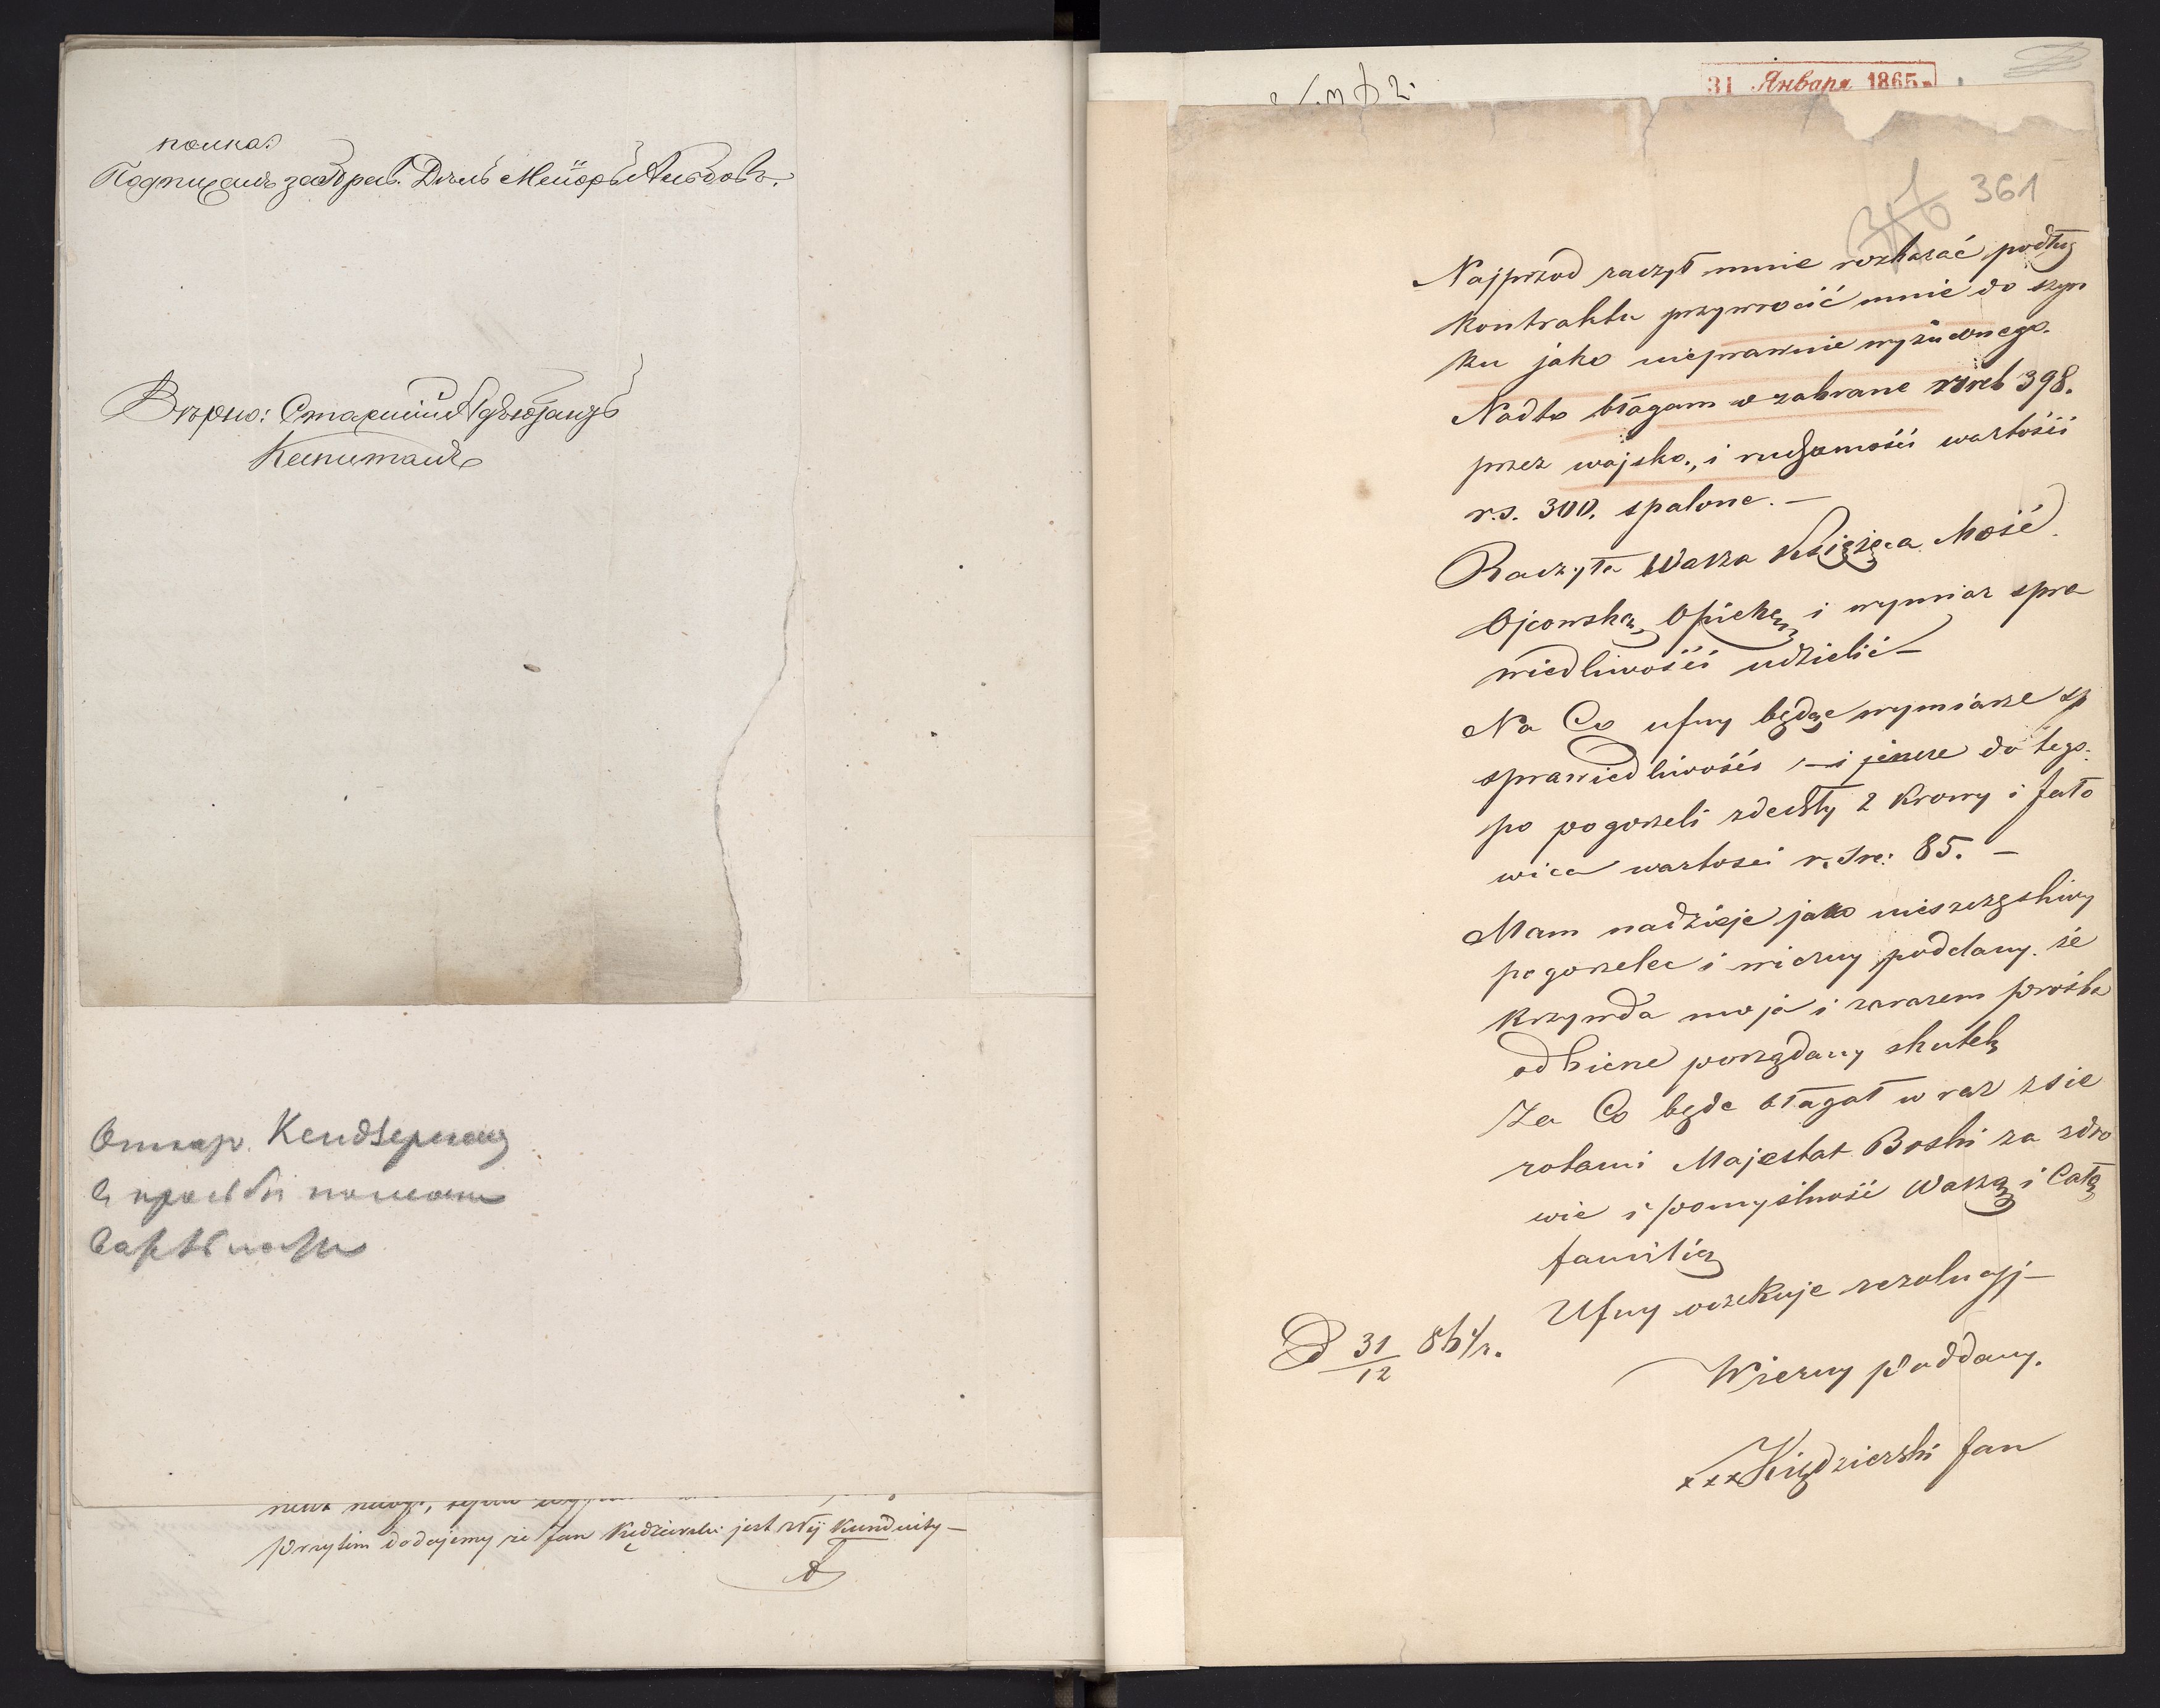 полка?
Подписалъ за Прав. Дѣлъ Маіоръ
Вѣрно: Старшій Адъютантъ
Капитанъ
просьбы
przytim dodajemy że Jan Kędzierski jest złÿ Kunduity –
31 Января 1865
361
Najprzod raczył mnie rozkazać podług
kontraktu przywrocić mnie do szyn
ku jako nieprawnie wyzutego.
Nadto błagam o zabrane rsreb 398.
przez wojsko, i ruchomości wartości
r.s. 300. spalone. –
Raczyła Wasza Książęca Mość
Ojcowską Opiekę i wymiar spra
wiedliwości udzielić –
Na Co ufny będąc wymiarze sp
sprawiedliwości – i jeszcze do tego.
po pogorzeli zdechły 2 Krowy i jało
wica wartosci r. sre: 85. –
Mam nadzieje jako nieszczęsliwy
pogorzelec i wierny poddany. że
Krzywda moja i zarazem prośba
odbierze porządany skutek
Za Co będe błagał w raz z sie
rotami Majestat Boski za zdro
wie i pomyślność Waszą i Całą
familią
Ufny oczekuje rezolucyj –
D 31/12 864/r.
Wierny Poddany.
xxx Kiędzierski Jan